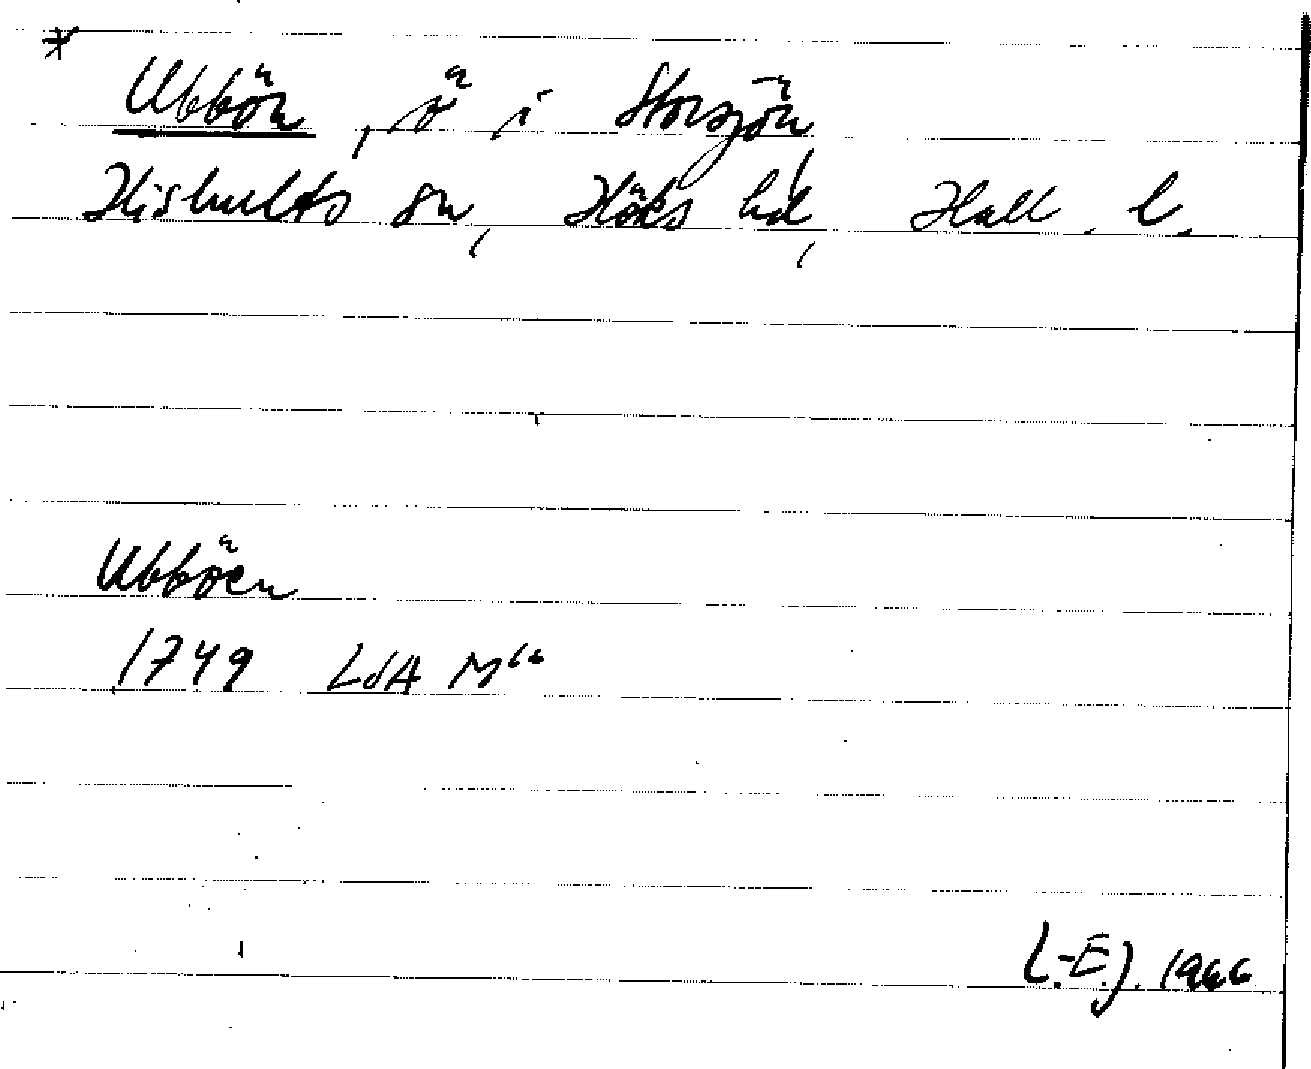 * Ubbön, ö i Storsjön
Hishults sn, Höks hd, Hall. l.
Ubböen
1749 LSA M
L.-E.J. 1966